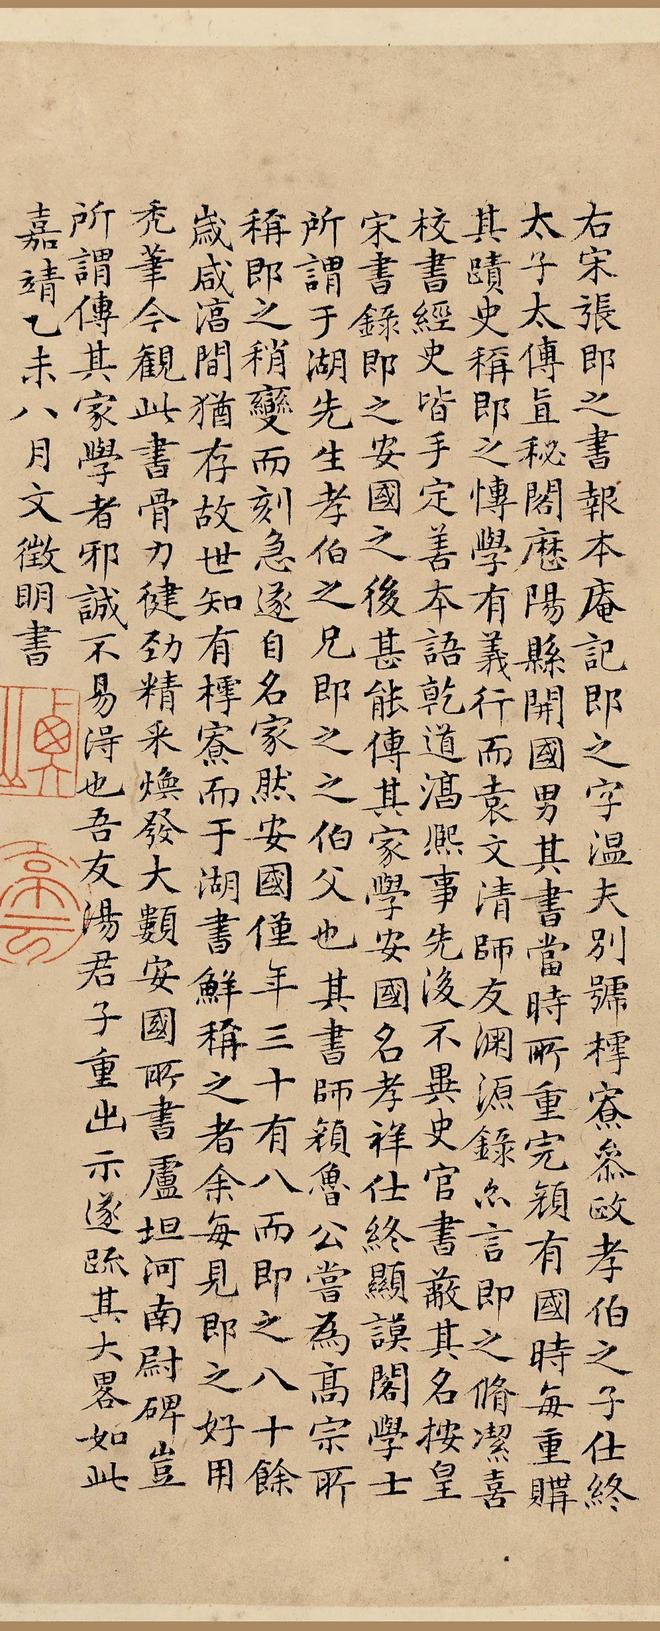 右宋張即之書報本庵記即之字温夫別號樗寮叅政孝伯之子仕終
太子太傅直秘閣歴陽縣開國男其書當時所重完顔有國時每重購
其蹟史稱即之慱學有義行而袁文清師友渊源錄亦言即之脩潔喜
校書經史皆手定善本語乾道淳熈事先後不異史官書蔽其名按皇
宋書錄即之安國之後甚能傳其家學安國名孝祥仕終顯謨閣學士
所謂于湖先生孝伯之兄即之之伯父也其書師顔魯公嘗為高宗所
稱即之稍變而刻急遂自名家然安國僅年三十有八而即之八十餘
歲咸淳間猶存故世知有樗寮而于湖書鮮稱之者余每見即之好用
禿筆今觀此書骨力健勁精采煥發大類安國所書盧坦河南尉碑豈
所謂傳其家學者邪誠不易得也吾友湯君子重出示遂疏其大畧如此
嘉靖乙未八月文徵明書